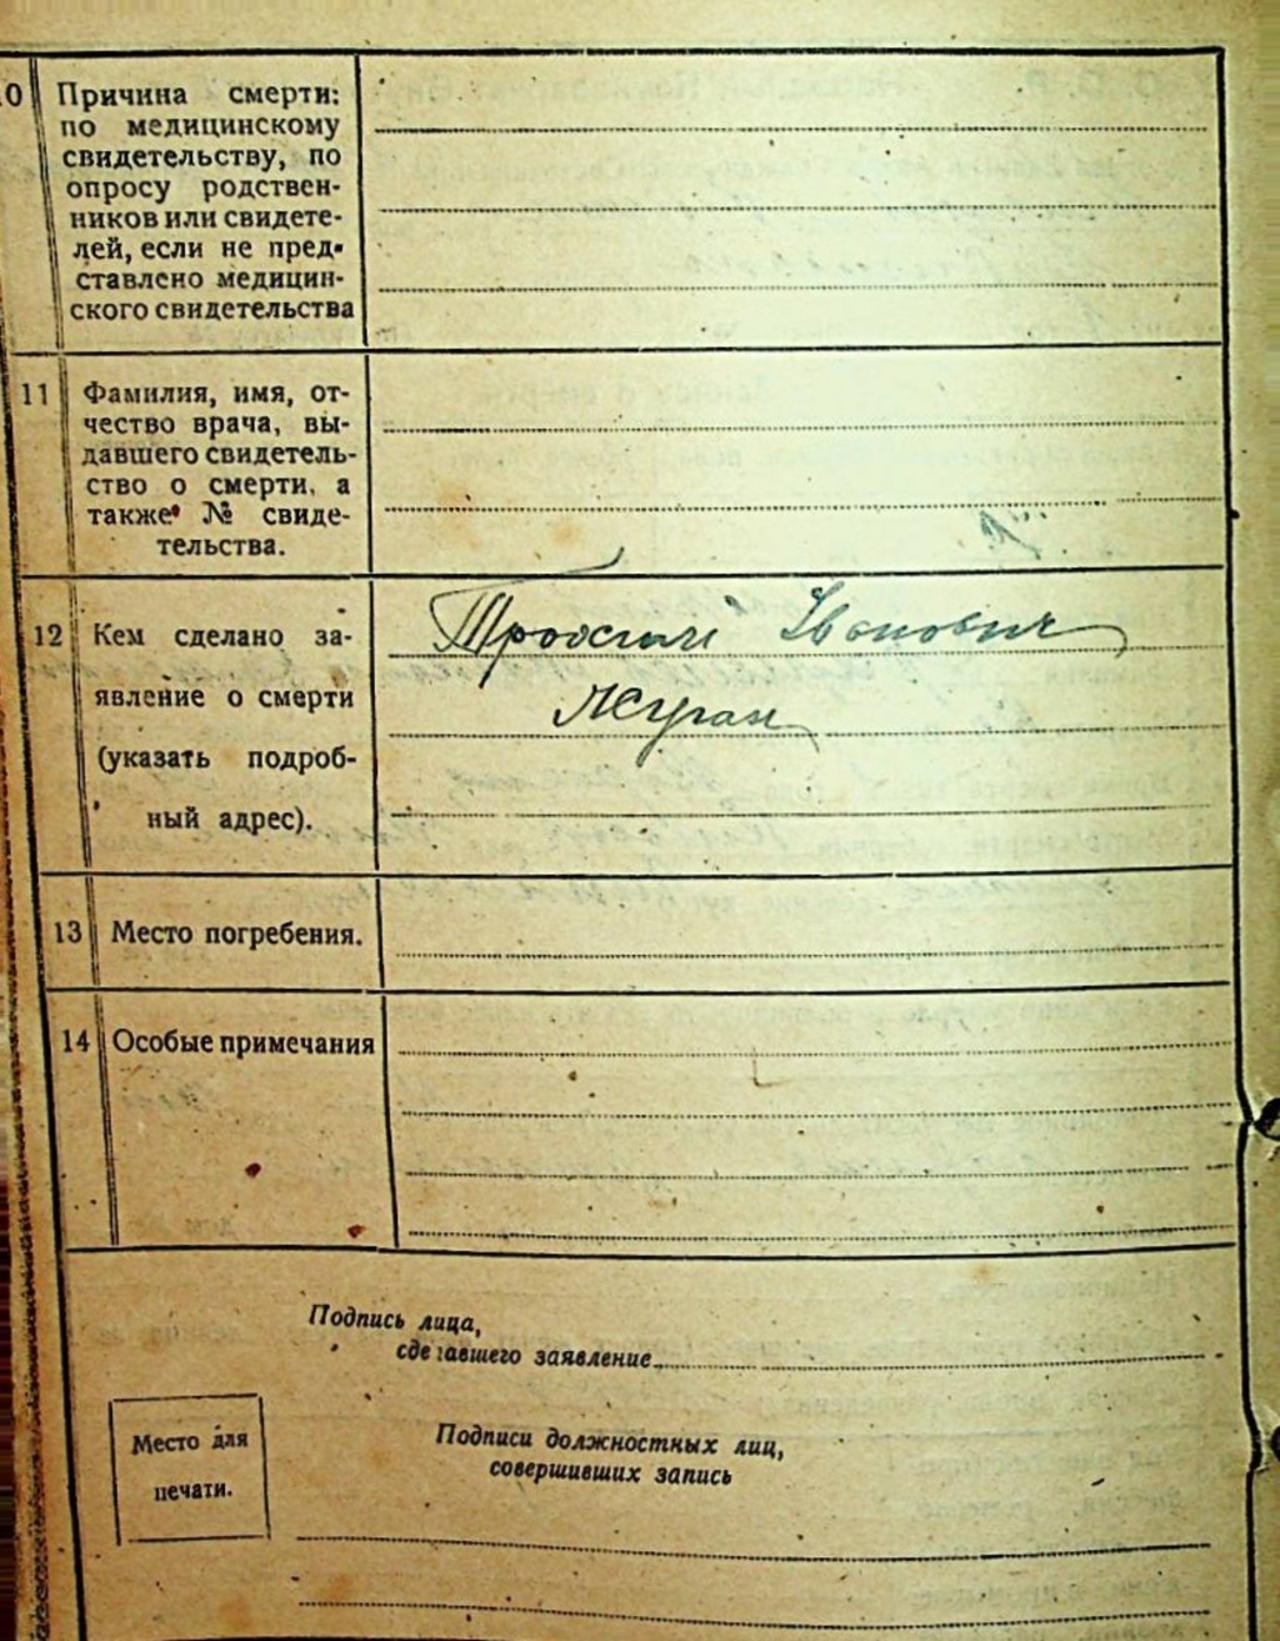 10 Причина смерти:
по медицинскому
свидетельству, по
опросу родствен-
ников или свидете-
лей, если не пред-
ставлено медицин-
ского свидетельства
11 Фамилия, имя, от-
чество врача, вы-
давшего свидетель-
ство о смерти, а
также № свиде-
тельства.
12 Кем сделано за-
явление о смерти
(указать подроб-
ный адрес).
Іванович
Жуган
13 Место погребения.
14 Особые примечания
Подпись лица,
сделавшего заявление
Место для
печати.
Подписи должностных лиц,
совершивших запись